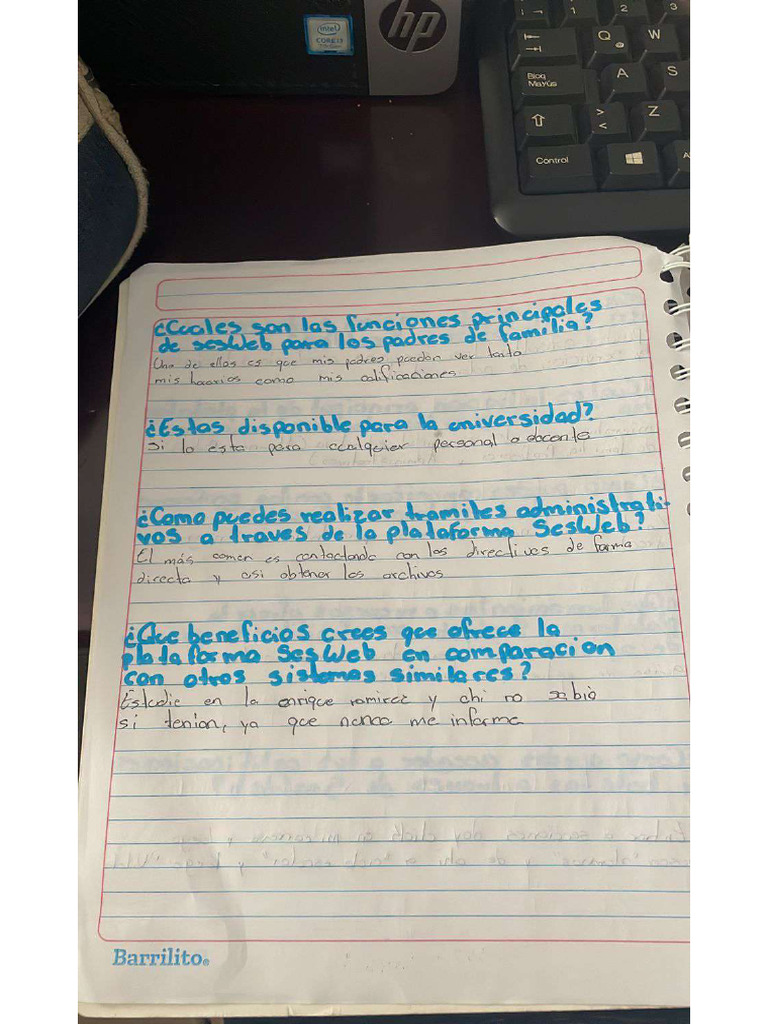 intel
CORE i3
hp
1 2 3
Q W
Bloq
Mayús
A S
>
<
Z
Control
A
¿Cuales son las funciones principales
de sesWeb para los padres de familia?
Una de ellas es que mis padres puedan ver tanto
mis horarios como mis calificaciones
¿Estas disponible para la universidad?
Si lo esta para cualquier personal o docente
¿Como puedes realizar tramites administrati-
vos a traves de la plataforma SesWeb?
El más comun es contactando con los directivos de forma
directa y asi obtener los archivos
¿Que beneficios crees que ofrece la
plataforma SesWeb en comparacion
con otros sistemas similares?
Estudie en la enrique ramirez y ahi no sabia
si tenian, ya que nunca me informe
Barrilito®